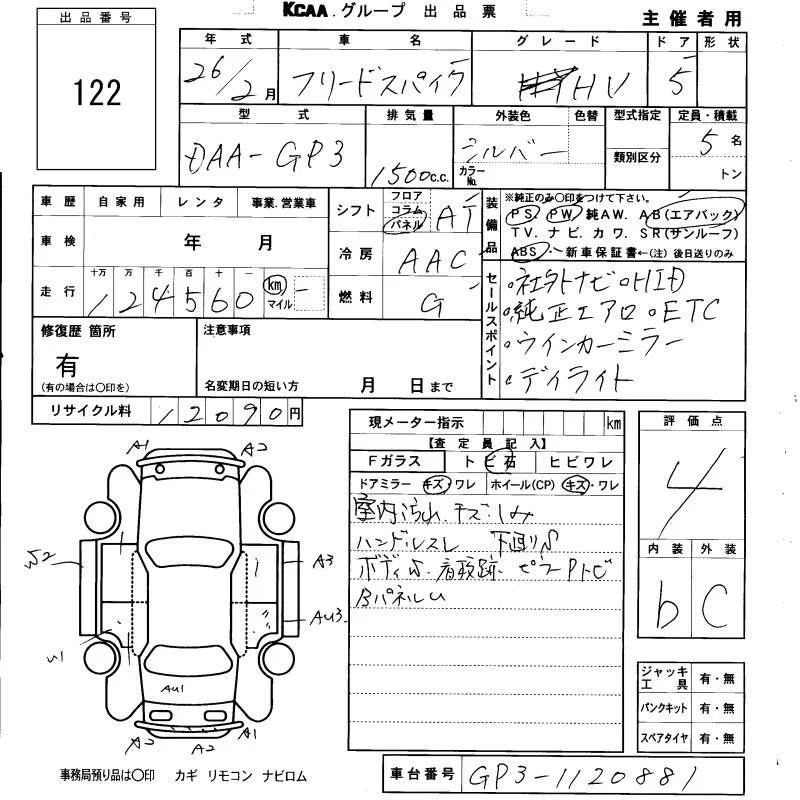 KCAA.グループ 出品票
主催者用
出品番号
122
年式 車名 グレード ドア 形状
26/2月 フリードスパイク HV 5
型式 排気量 外装色 色替 型式指定 定員・積載
類別区分
DAA-GP3 1500c.c. シルバー カラーNo. 5名
トン
車歴 自家用 レンタ 事業.営業車
車検 年 月
走行 十万 万 千 百 十 一
124560 km マイル
シフト フロア コラム パネル AT
冷房 AAC
燃料 G
装備品
※純正のみ〇印をつけて下さい。
PS PW 純AW. AB(エアバック)
TV. ナビ. カワ. SR(サンルーフ)
ABS・新車保証書←(注)後日送りのみ
セールスポイント
・社外ナビ。HID
・純正エアロ。ETC
・ウインカーミラー
・デイライト
修復歴 箇所
有
(有の場合は〇印を)
注意事項
名変期日の短い方 月 日まで
リサイクル料 12090円
現メーター指示 km
【査定員記入】
Fガラス トビ石 ヒビワレ
ドアミラー キズ・ワレ ホイール(CP) キズ・ワレ
室内汚れ.キズ.しみ
ハンドルスレ 下廻りS
ボディS.看取跡.ピラーPトビ
BパネルU
評価点
4
内装 外装
b C
A1 A2
W2
A3
AU3
AU1
A2 A2 A1
ジャッキ工具 有・無
パンクキット 有・無
スペアタイヤ 有・無
事務局預り品は〇印 カギ リモコン ナビロム
車台番号 GP3-1120881